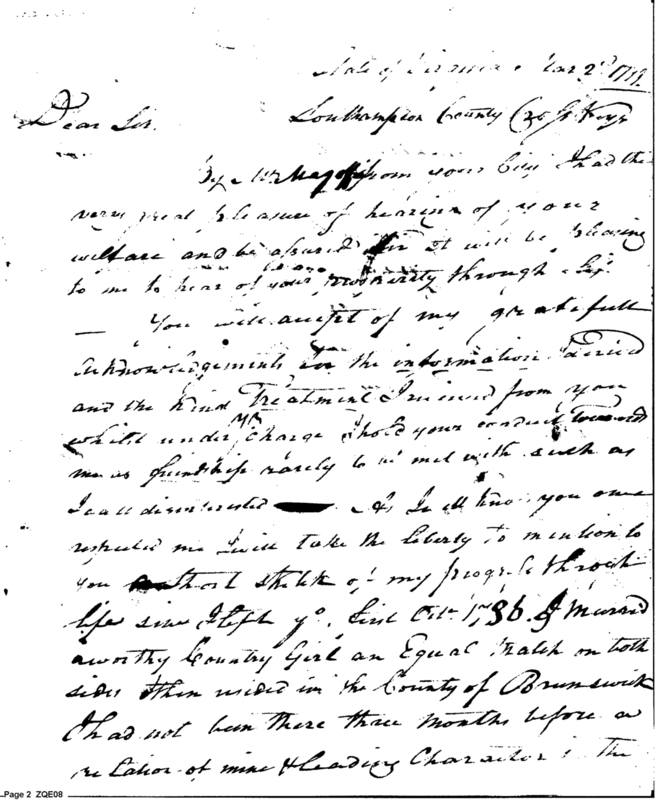 State of Virginia Mar 2d 1799
Dear Sir. Southampton County
By Mr from your City I had the
very great pleasure of hearing of your
welfare and be assured Sir it will be pleasing
to me to hear of your prosperity through Life.
— You will accept of my gratefull
acknowledgements for the information I derived
and the kind Treatment I received from you
whilst under yr Charge I hold your conduct towards
me as friendship rarely to be met with such as
I call disinterested — As I well know you once
respected me I will take the liberty to mention to
you a short sketch of my progress through
life since I left yo. first Octr 1786. I Married
a worthy Country Girl an Equal Match on both
sides then resided in the County of Brunswick
I had not been there three months before a
relation of mine & leading Character in the
Page 2 ZQE08